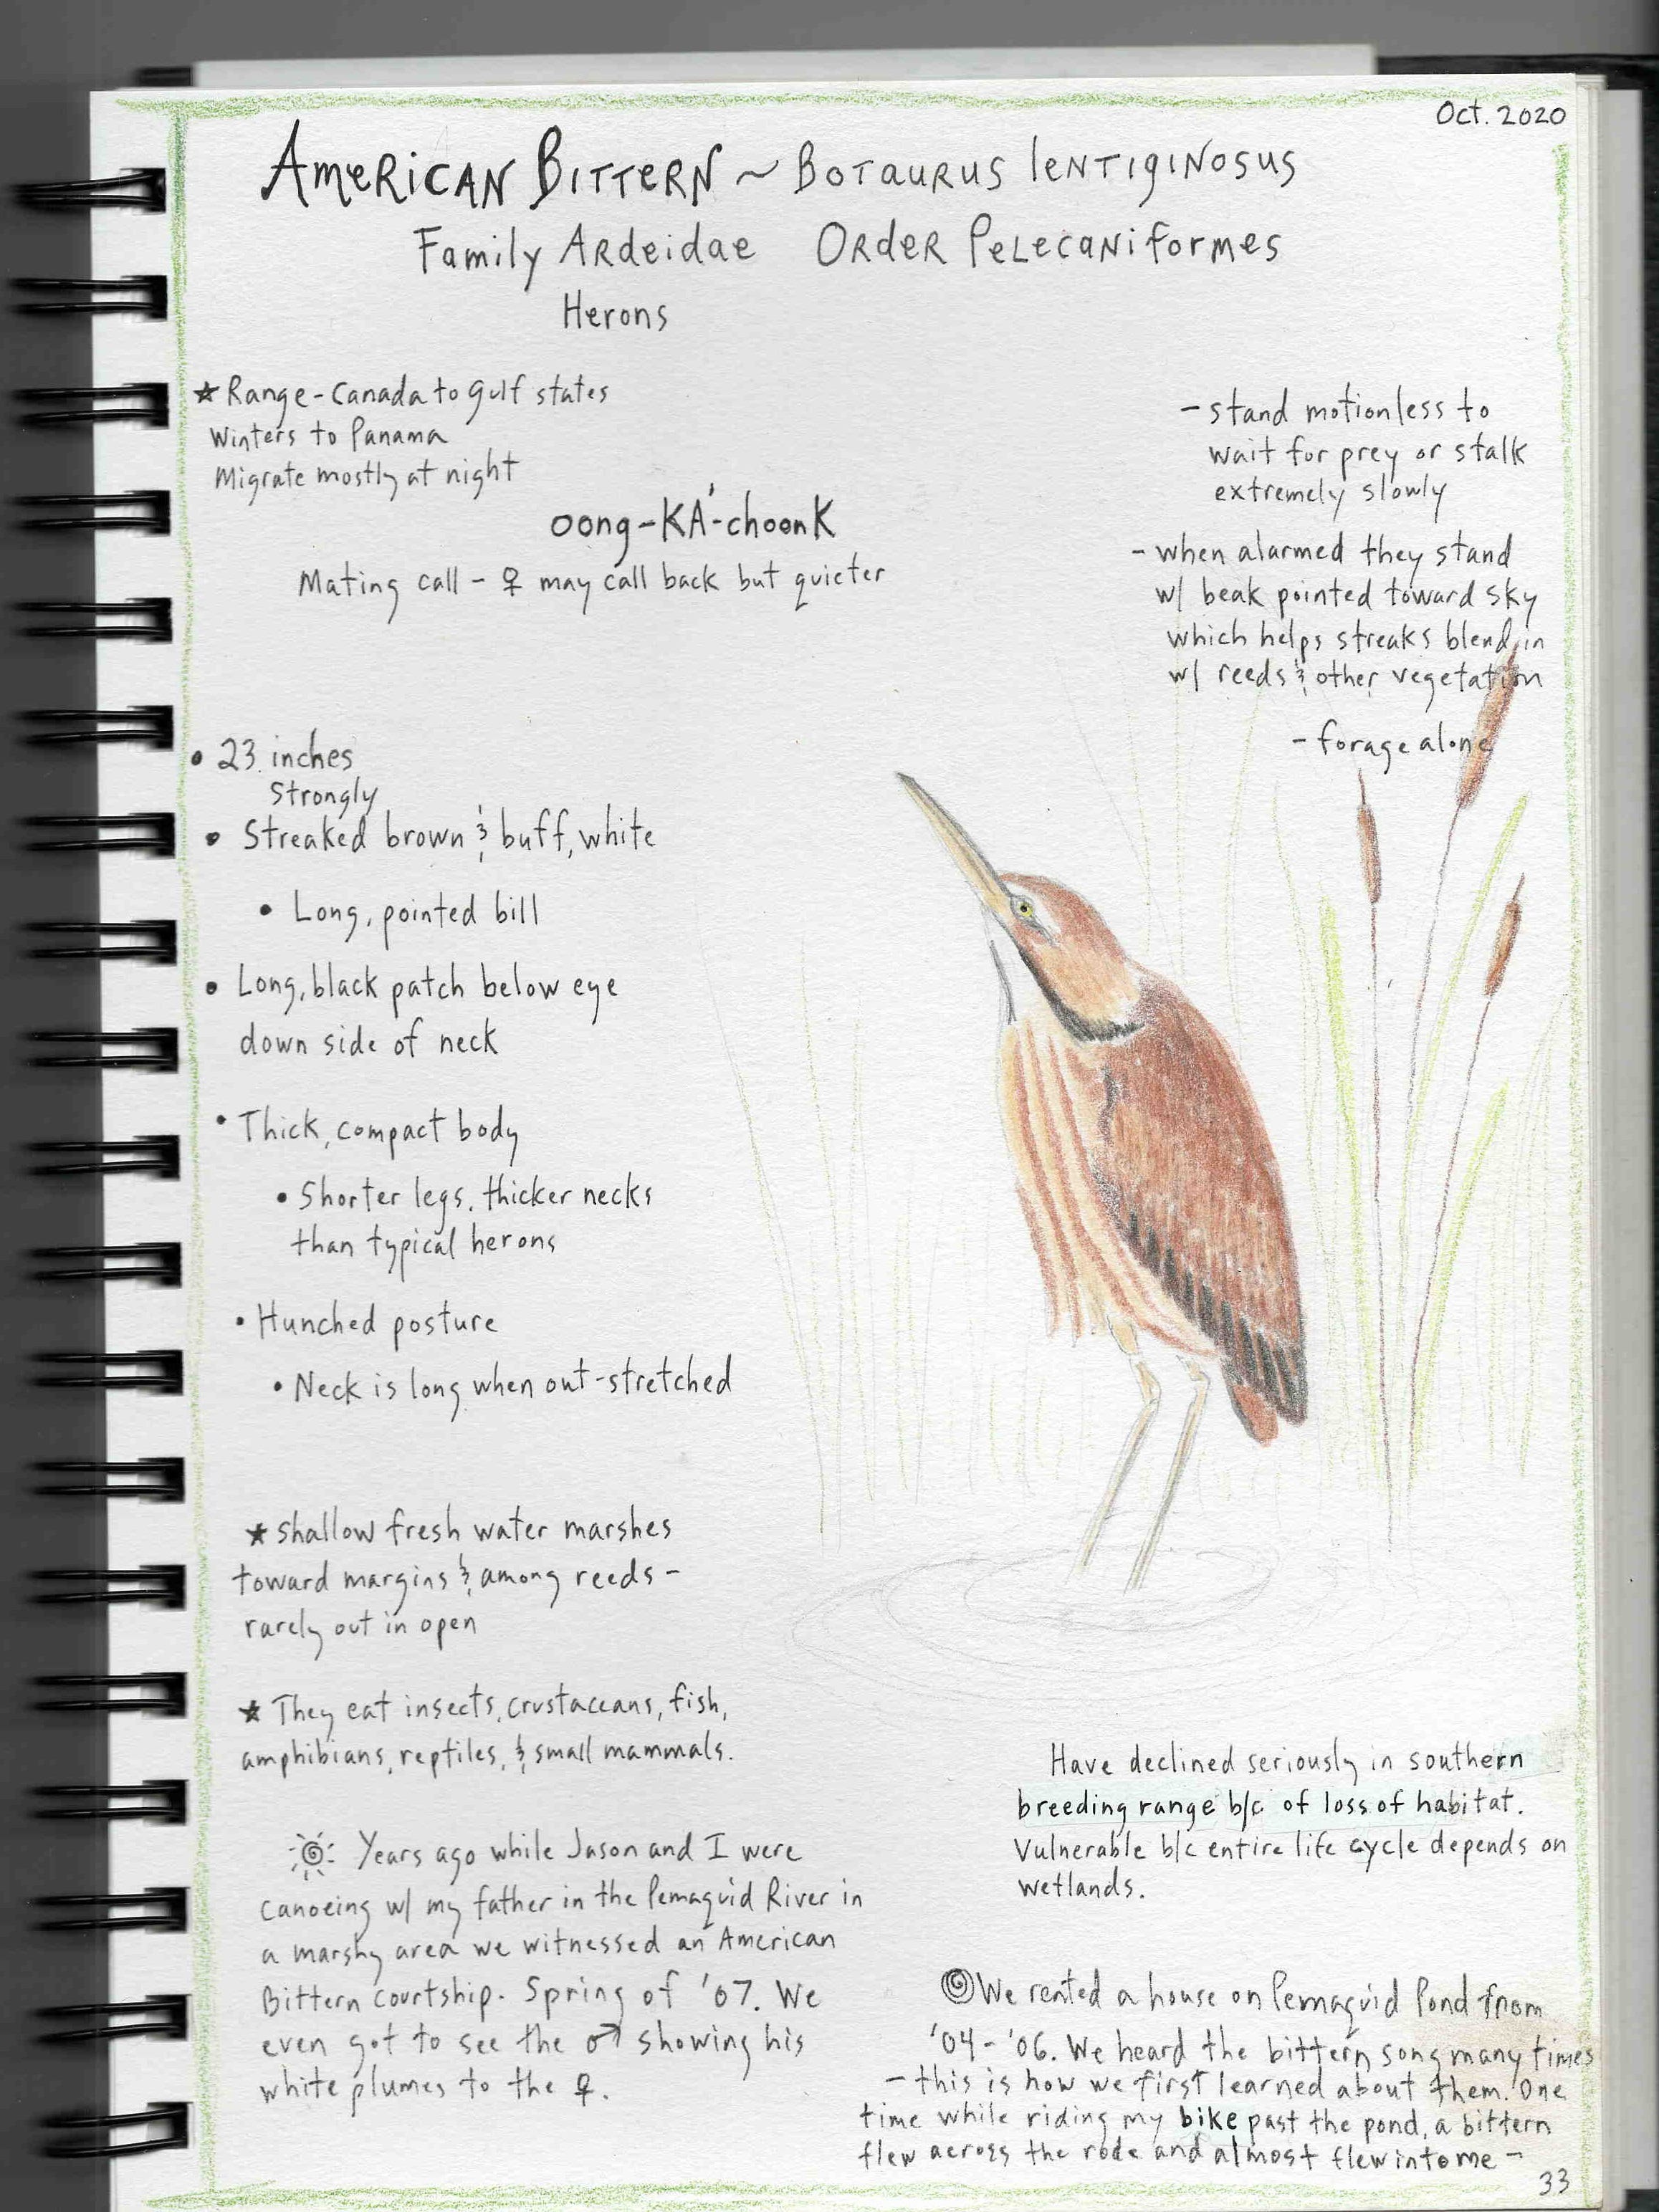 Oct. 2020
American Bittern ~ Botaurus lentiginosus
Family Ardeidae Order Pelecaniformes
Herons
★ Range - Canada to gulf states
Winters to Panama
Migrate mostly at night
oong-KÁ-choonk
Mating call - ♀ may call back but quieter
- stand motionless to
wait for prey or stalk
extremely slowly
- when alarmed they stand
w/ beak pointed toward sky
which helps streaks blend in
w/ reeds & other vegetation
- forage alone
• 23 inches
Strongly
• Streaked brown & buff, white
• Long, pointed bill
• Long, black patch below eye
down side of neck
• Thick, compact body
• Shorter legs, thicker necks
than typical herons
• Hunched posture
• Neck is long when out-stretched
★ shallow fresh water marshes
toward margins & among reeds -
rarely out in open
★ They eat insects, crustaceans, fish,
amphibians, reptiles, & small mammals.
Have declined seriously in southern
breeding range b/c of loss of habitat.
Vulnerable b/c entire life cycle depends on
wetlands.
Years ago while Jason and I were
canoeing w/ my father in the Pemaquid River in
a marshy area we witnessed an American
Bittern courtship. Spring of '07. We
even got to see the ♂ showing his
white plumes to the ♀.
We rented a house on Pemaquid Pond from
'04 - '06. We heard the bittern song many times
- this is how we first learned about them. One
time while riding my bike past the pond, a bittern
flew across the rode and almost flew into me -
33